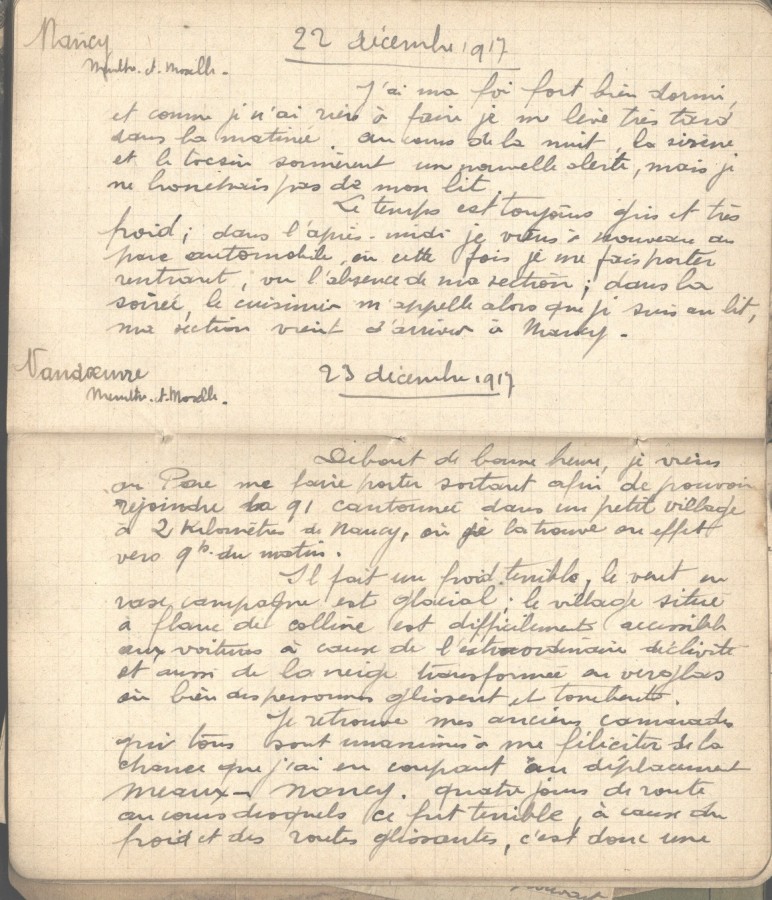 Nancy 22 décembre 1917
Meurthe. et. Moselle.
J'ai ma foi fort bien dormi,
et comme je n'ai rien à faire je me lève très tard
dans la matinée. au cours de la nuit, la sirène
et le tocsin sonnèrent un nouvelle alerte, mais je
ne bronchais pas de mon lit.
Le temps est toujours gris et très
froid ; dans l'après-midi je viens à nouveau au
parc automobile, où cette fois je me fais porter
rentrant, vu l'absence de ma section ; dans la
soirée, le cuisinier m'appelle alors que je suis au lit,
ma section vient d'arriver à Nancy.
Vandoeuvre 23 décembre 1917
Meurthe. et. Moselle.
Debout de bonne heure, je viens
au Parc me faire porter sortant afin de pouvoir
rejoindre la 91 cantonnée dans un petit village
à 2 kilomètres de Nancy, où je la trouve en effet
vers 9h. du matin.
Il fait un froid terrible, le vent en
rase campagne est glacial ; le village situé
à flanc de colline est difficilement accessible
aux voitures à cause de l'extraordinaire déclivité
et aussi de la neige transformée en verglas
où bien des personnes glissent et tombent.
Je retrouve mes anciens camarades
qui tous sont unanimes à me féliciter de la
chance que j'ai eu coupant au déplacement
Meaux - Nancy. quatre jours de route
au cours desquels ce fut terrible, à cause du
froid et des routes glissantes, c'est donc une